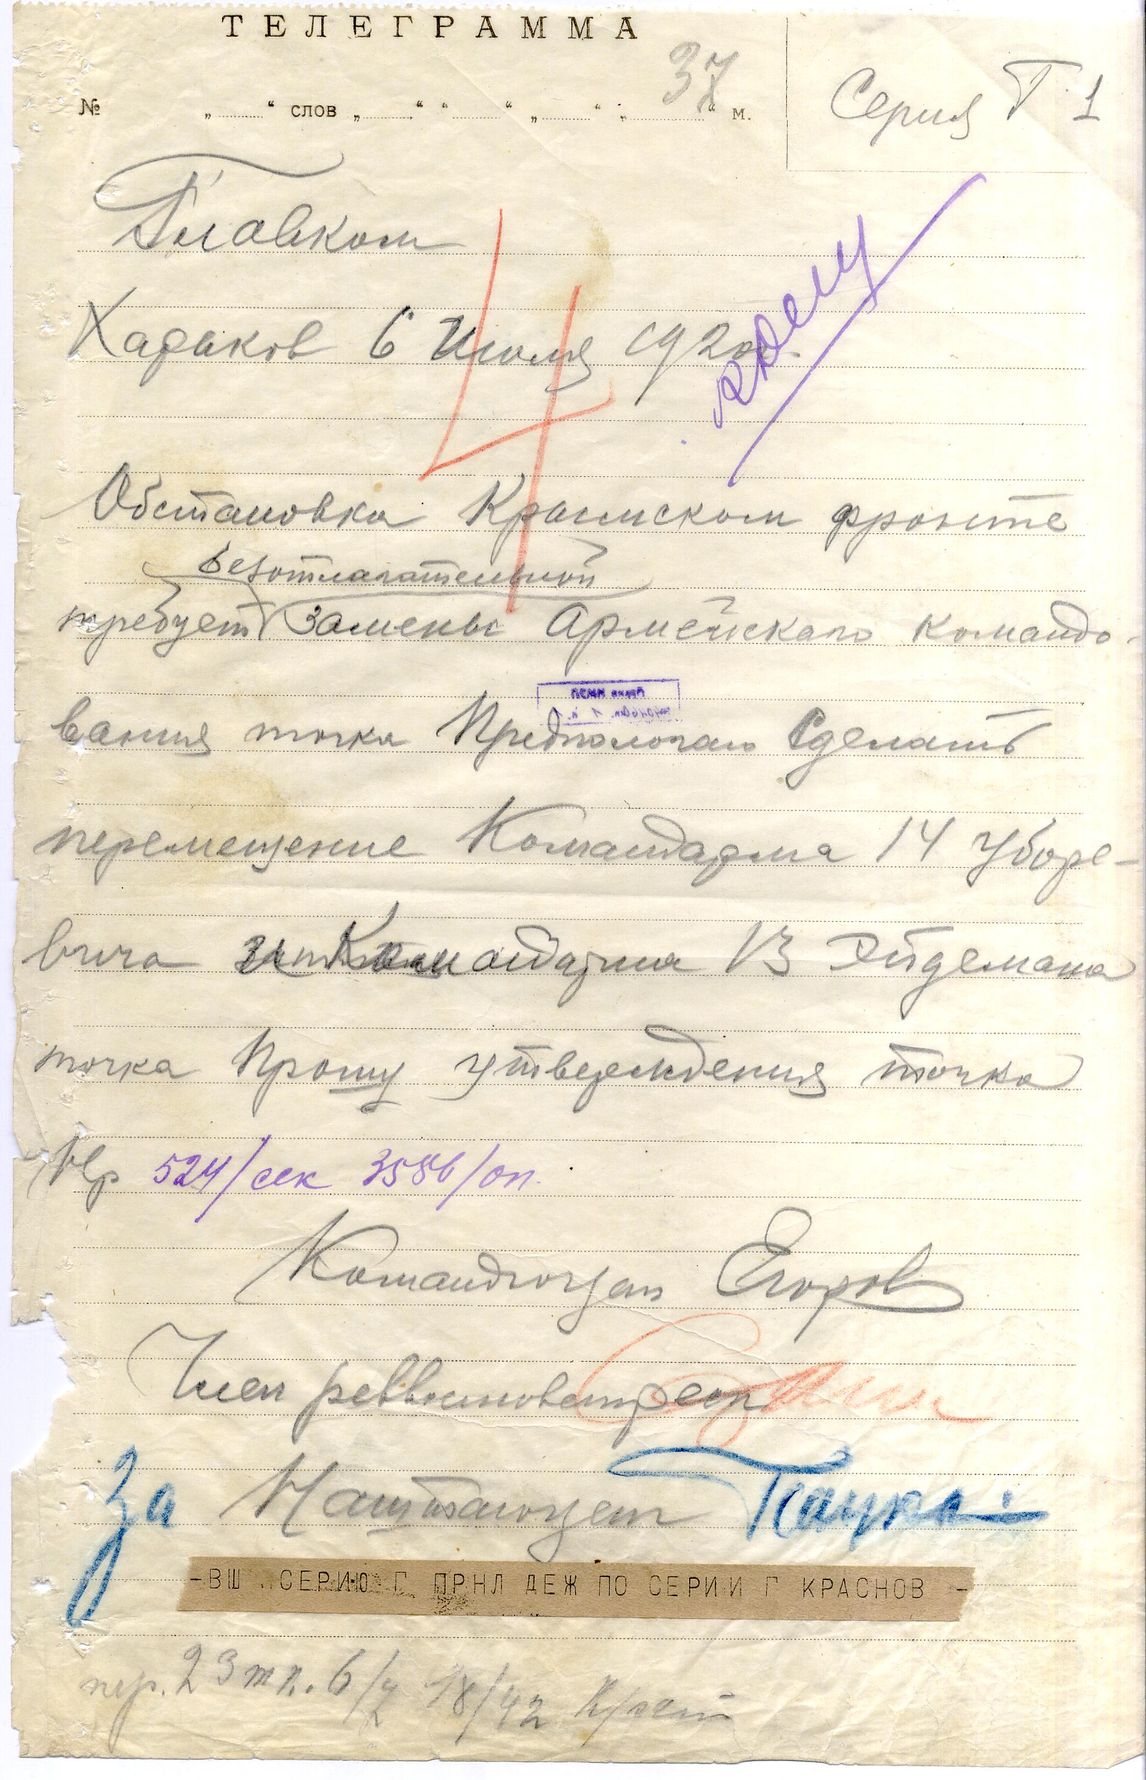 ТЕЛЕГРАММА
№ „ “ слов „ “ “ “ „ “ „ “ м.
37
Серия Г 1
Главком
Харьков 6 Июля 1920г.
к делу
4
Обстановка Крымском фронте
безотлагательной
требует замены Армейского командо-
вания точка Предполагаю Сделать
перемещение Командарма 14 Уборе-
вича Командарма 13 Эйдемана
точка Прошу утверждения точка
Нр 524/сек 3586/оп.
Командюгзап Егоров
Член реввоенсовета
За Наштаюгзап Паука
-ВШ СЕРИЮ Г ПРНЛ ДЕЖ ПО СЕРИИ Г КРАСНОВ -
пер. 23 тп. 6/7 18/42